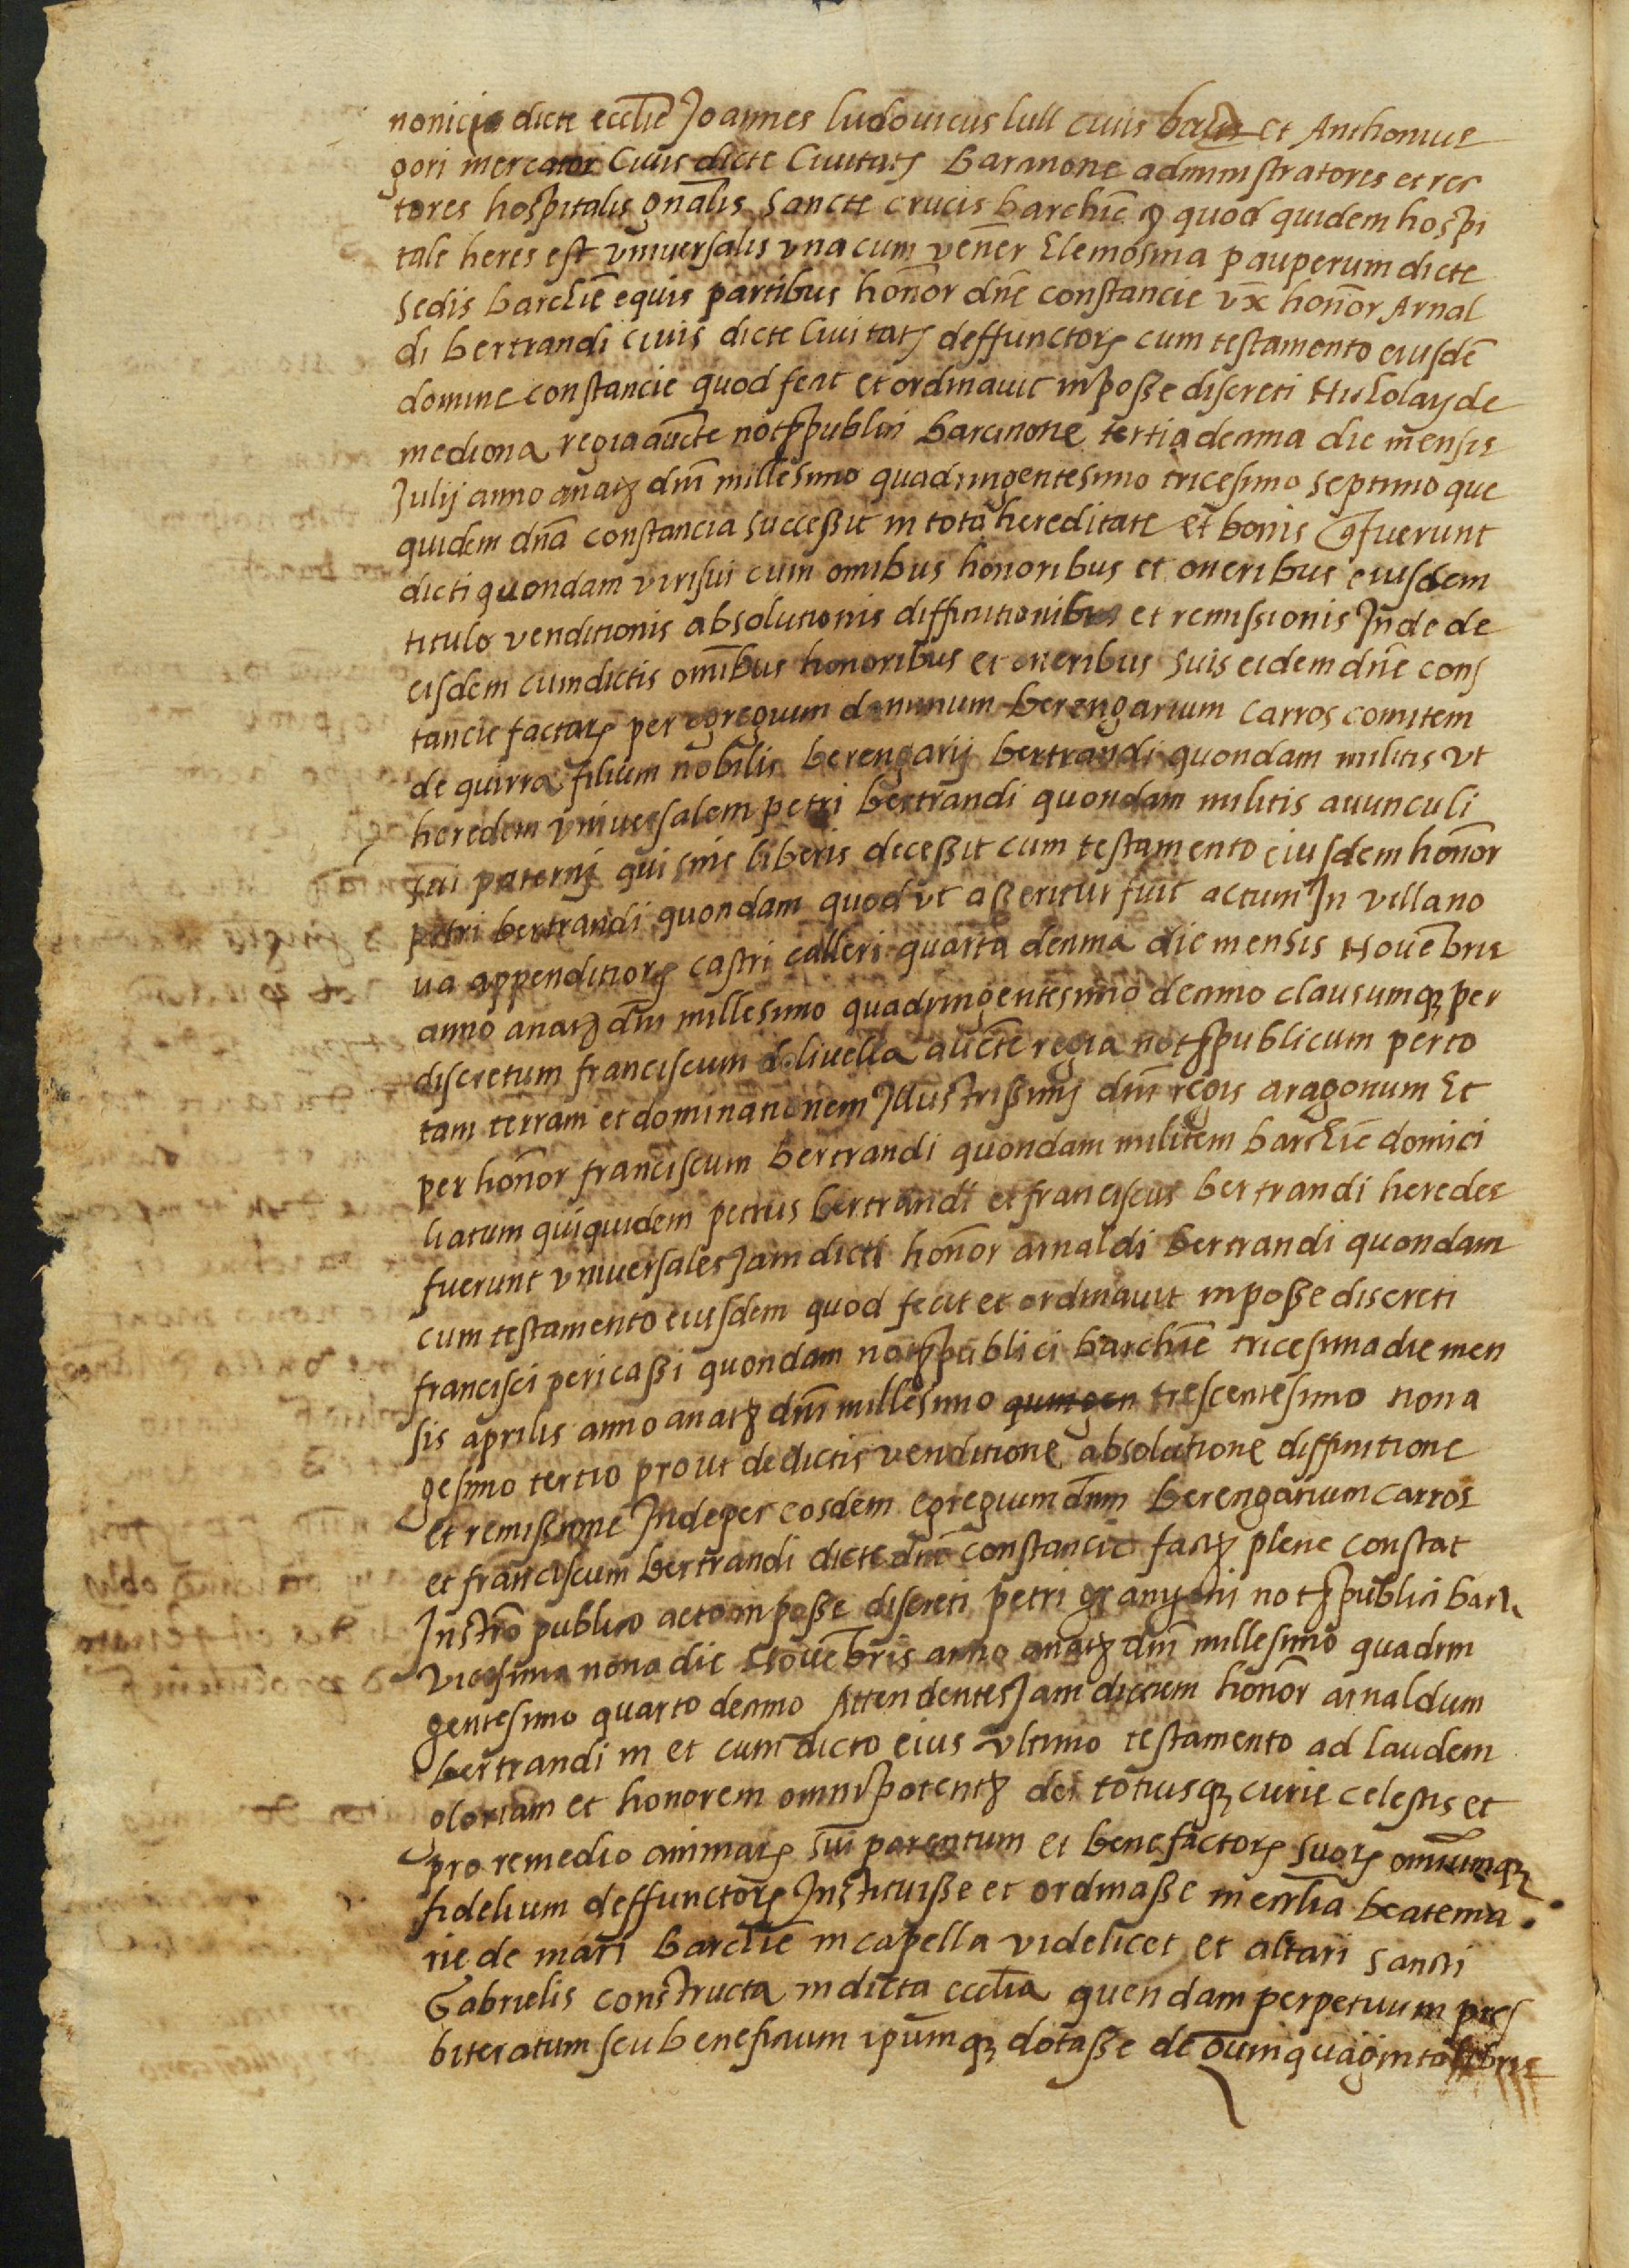 nonici dicte eccłie Joannes ludouicus lull ciuis barcñ et Anthonius
gori mercator Ciuis dicte Ciuitatꝭ Barcinone administratores et rec
tores hospitalis gñalis sancte crucis barchiñe ꝙ quod quidem hospi
tale heres est vniuersalis vna cum veneȓ Elemosina pauperum dicte
sedis barchiñe equis partibus honoȓ dñe constancie vx̄ honoȓ Arnal
di bertrandi ciuis dicte Ciuitatꝭ deffunctorꝭ cum testamento eiusdē
domine constancie quod fecit et ordinauit in posse discreti Nicolay de
mediona regia aucte notꝭ publici barcinone tertia decima die mensis
Julij anno anatꝫ dñi millesimo quadringentesimo tricesimo septimo que
quidem dña constancia successit in tota hereditate et bonis q̄ fuerunt
dicti quondam viri sui cum omibus honoribus et oneribus eiusdem
titulo venditionis absolutionis diffinitionibus et remissionis Jnde de
eisdem cum dictis omībus honoribus et oneribus suis eidem dñe cons
tancie factarꝭ per egregium dominum berengarium carros comitem
de quirra filium nobilis berengarij bertrandi quondam militis vt
heredem vniuersalem petri bertrandi quondam militis auunculi
sui paternj qui sine liberis decessit cum testamento eiusdem honoȓ
petri bertrandi quondam quod vt asseritur fuit actum Jn villa no
ua appenditiorꝭ castri calleri quarta decima die mensis Nouēbris
anno anatꝫ dñi millesimo quadringentesimo decimo clausumqꝫ per
discretum franciscum doliuella aucte regia notꝭ publicum per to
tam terram et dominationem Jllustrissimj dñi regis aragonum Et
per honoȓ franciscum bertrandi quondam militem barchiñe domici
liatum qui quidem petrus bertrandi et franciscus bertrandi heredes
fuerunt vniuersales Jam dicti honoȓ arnaldi bertrandi quondam
cum testamento eiusdem quod fecit et ordinauit in posse discreti
francisci pericassi quondam notꝭ publici barchiñe tricesima die men
sis aprilis anno anatꝫ dñi millesimo quingen trescentesimo nona
gesimo tertio prout de dictis venditione absolutione diffinitione
et remissione Jnde per eosdem egregium dñm berengarium carros
et franciscum bertrandi dicte dñe constancie factꝫ plene constat
Jnstrō publico acto in posse discreti petri granyani notꝭ publici barc̄
vicesima nona die Nouēbris anno anatꝫ dñi millesimo quadrin
gentesimo quarto decimo Attendentes Jam dictum honoȓ arnaldum
bertrandi in et cum dicto eius vltimo testamento ad laudem
gloriam et honorem omnipotentꝫ dei totiusqꝫ curie celestis et
pro remedio animarꝭ sui parentum et benefactorꝭ suorꝭ omniumqꝫ
fidelium deffunctorꝭ Jnstituisse et ordinasse in eccłia beate ma
rie de mari barchiñe in capella videlicet et altari sancti
Gabrielis constructa in dicta eccłia quendam perpetuum pres
biteratum seu beneficium ipumqꝫ dotasse de quinquaginta libris